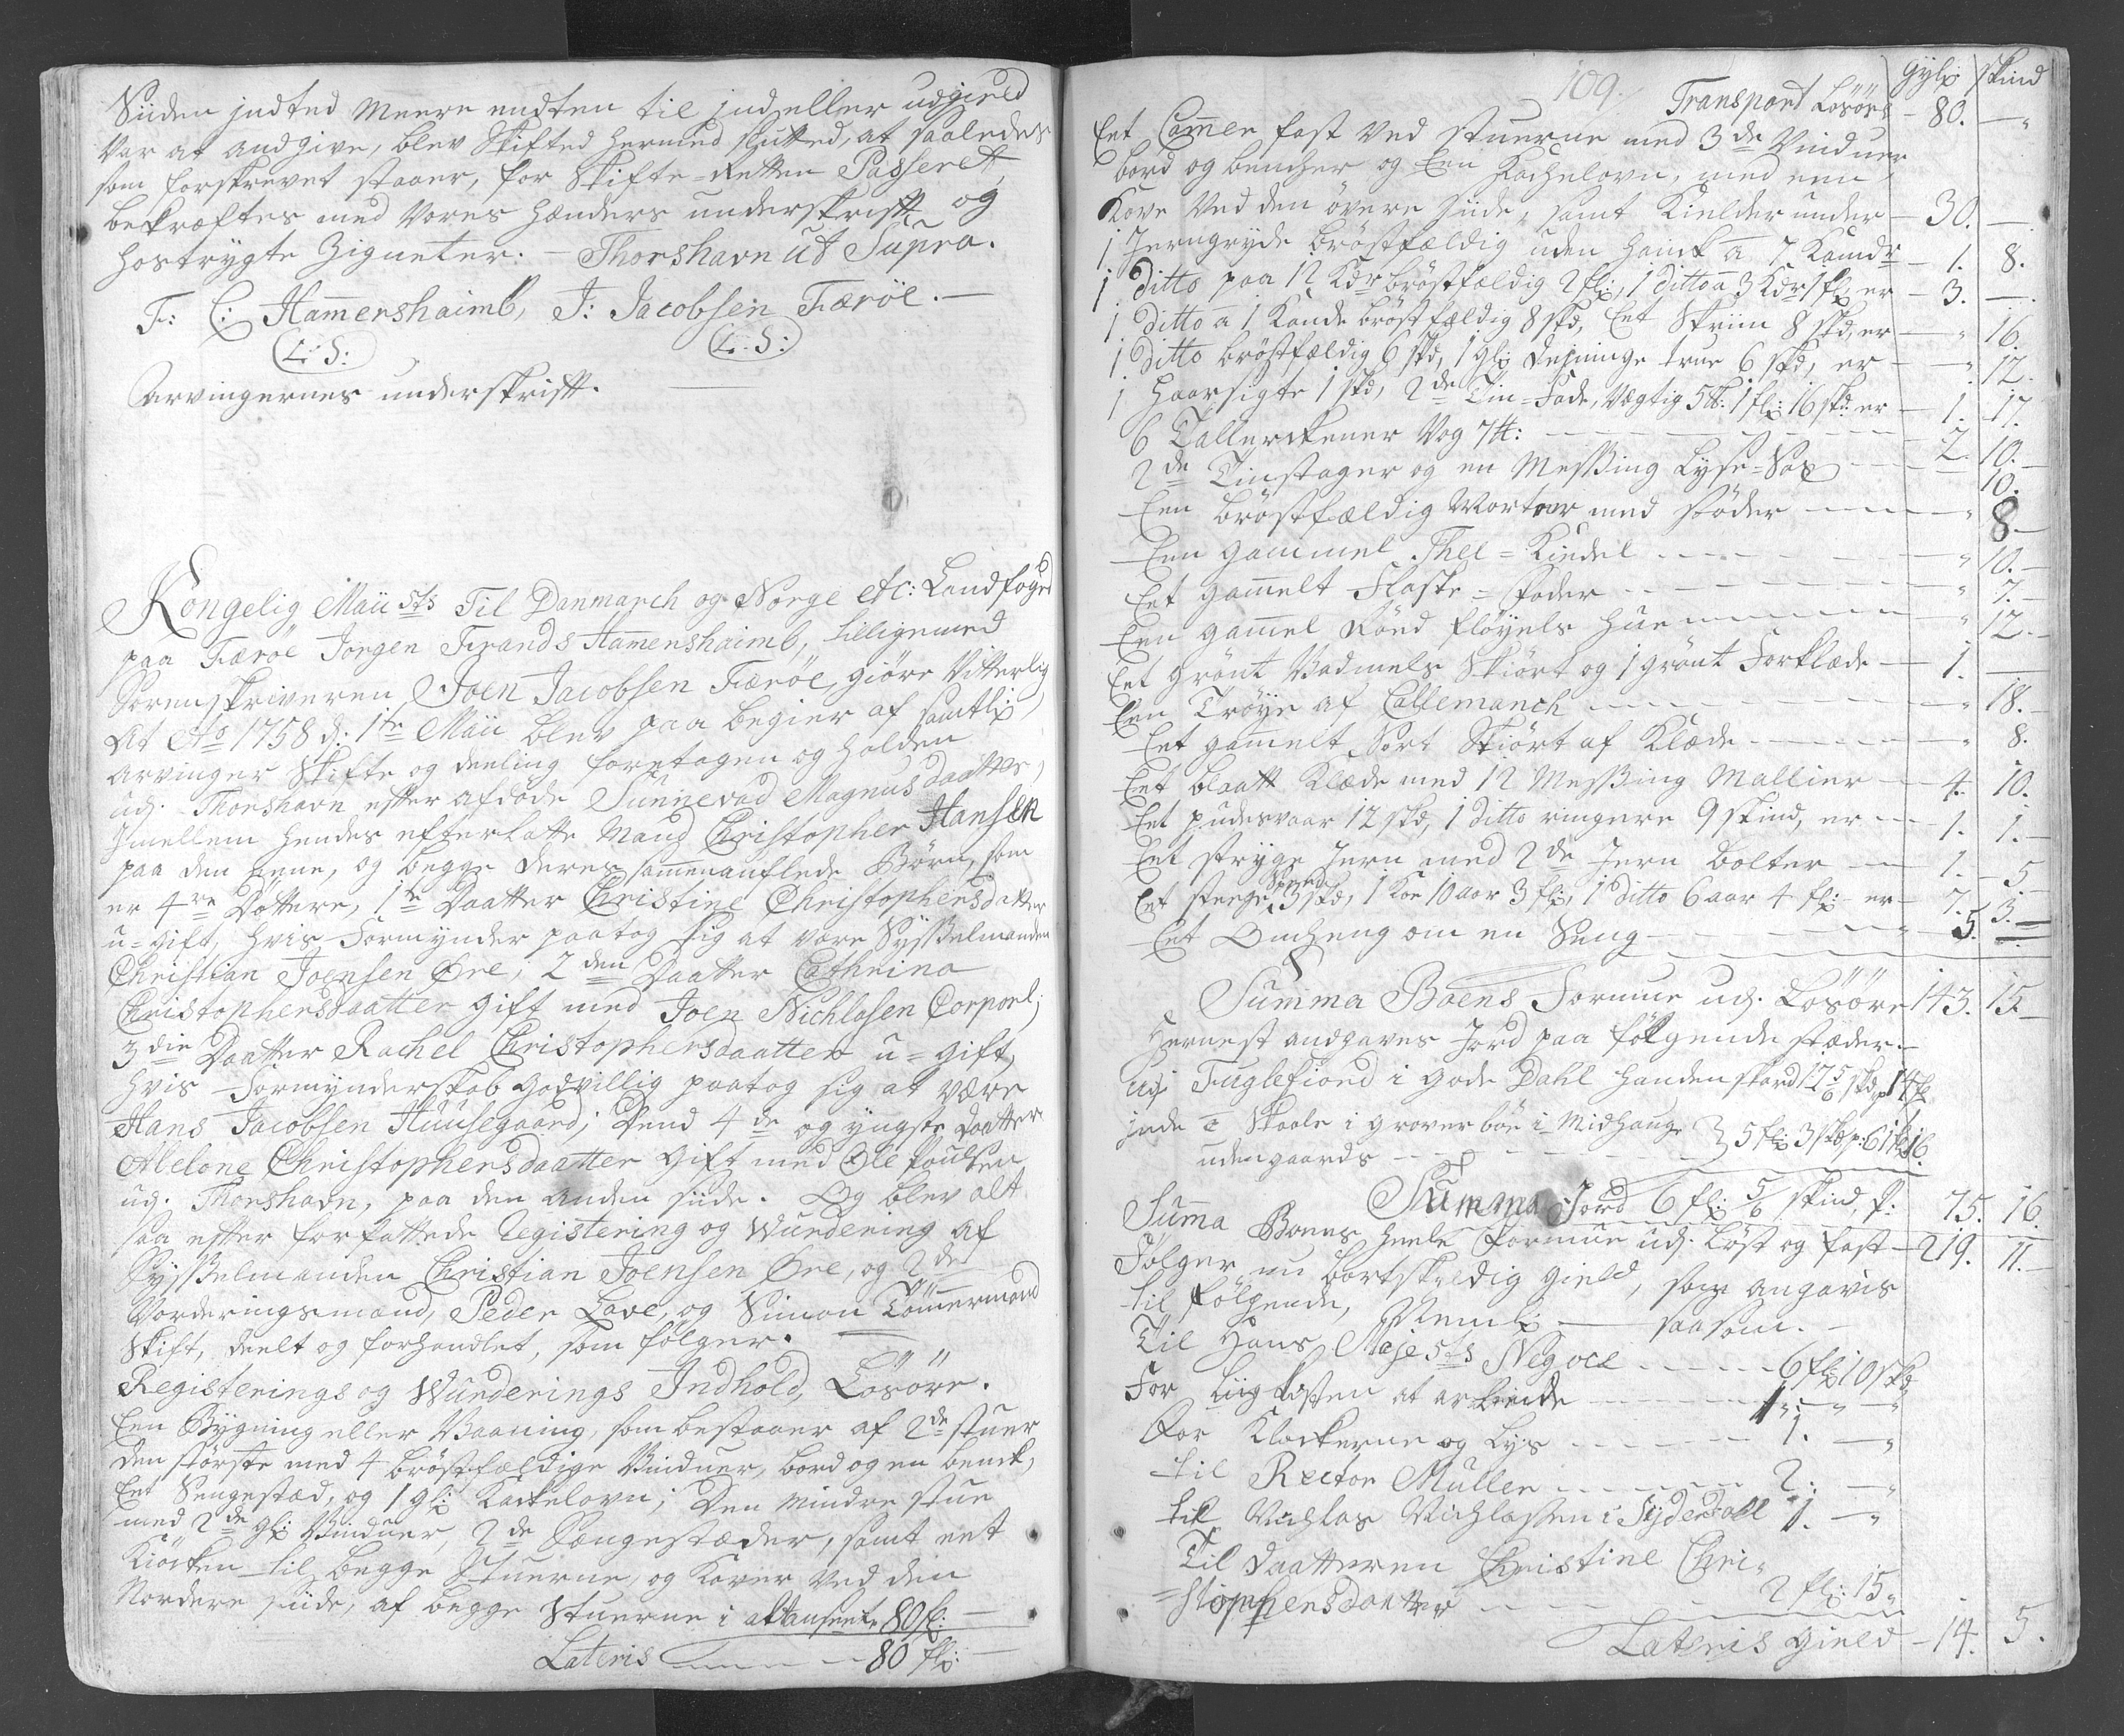 Siiden indted meere endten til ind eller udgield
var at andgive, blev Skifted hermed slutted, at saaledes
som forskrevet staaer, for Skifte-Retten Passeret,
bekræftes med vores hænders underskrift og
hostrygte Zigneter. — Thorshavn ut Supra.
F: C: Hamershaimb, J: Jacobsen Færöe. —
L: S: L: S:
Arvingernes underskrift.
Kongelig Maii sts Til Danmarch og Norge etc: Landfoged
paa Færöe Jörgen Frands Hamershaimb, tilligemed
Sorenskriveren Joen Jacobsen Færöe, giöre vitterlig
At Ao 1758 d: 1te Maii blev paa begier af samtlig
arvinger Skifte og deeling foretagen og holden
udj Thorshavn efter afdöde Sunnevad Magnusdaatter,
Imellem hendes efterlatte Mand Christopher Hansen
paa den eene, og begge deres samenauflede Börn, som
er 4re Döttere, 1te Daatter Christine Christophersdatter
u-gift, hvis Formynder paatog sig at være Sysselmanden
Christian Joensen Øre, 2den Daatter Cathrina
Christophersdaatter gift med Joen Nichlasen Corporl;
3die Daatter Rachel Christophersdaatter u-gift,
hvis Formynderskab godvillig paatog sig at være
Hans Jacobsen Huusegaard; Dend 4de og yngste Daatter
Alelone Christophersdaatter gift med Ole Poulsen
udj Thorshavn, paa den anden siide. Og blev alt
saa efter forfattede Registering og Wurdering af
Sysselmanden Christian Joensen Øre, og 2de
Vorderingsmænd, Peder Lave, og Simon Tömermand
Skift, deelt og forhandlet, som fölger.
Registerings og Wurderings Indhold, Lösöre.
Een Bygning eller Vaaning, som bestaaer af 2de stuer
den störste med 4 bröstfældige Vinduer, bord og en benck,
Eet Sengestæd, og 1 gl: Kackelovn; Den mindre stue
med 2de gl: Vinduer, 2de Sengestæder, samt eet
Kiöcken til begge Stuerne, og Kover ved den
Nordere siide, af begge Stuerne i alt 80 fl:
Lateris — 80 fl:
109.
gyl: skind
Transport Lösöre — 80. —
Eet Camer fast ved stuerne med 3de Vinduer
bord og bencher og Een Kachelovn, med een
Kove ved den övere siide, samt Kielder under — 30. —
1 Jerngryde bröstfældig uden hanck a 7 Kander — 1. 8.
1 ditto paa 12 Kdr bröstfældig 2 fl:, 1 ditto a 3 Kdr 1 fl: er — 3. —
1 ditto a 1 Kande bröstfældig 8 skd, Eet Skriin 8 skd, er — 16.
1 ditto bröstfældig 6 skd, 1 gl: dejninge true 6 skd, er — 12.
1 Haarsigte 1 skd, 2de Tin-Fade, vægtig 5 ℔: 1 fl: 16 skd: er — 1. 17.
6 Tallerckener Vog 7 ℔: — 2. 10.
2de Tinstager og en Messing Lyse-Sax — 10.
Een bröstfældig Mortaer med støder — 8.
Een gammel Thee-Kiedel — 10.
Eet gamelt Flaske-Foder — 7.
Een gamel Röed Flöyels hue — 12.
Eet Grönt Vadmels Skiört og 1 grönt Forklæde — 1. —
Een Tröye af Callemanch — 18.
Eet gamelt Sort Skiört af Klæde — 8.
Eet blaatt Klæde med 12 Messing Mallier — 4. 10.
Eet pudesvaar 12 skd, 1 ditto ringere 9 skind, er — 1. 1.
Eet stryge Jern med 2de Jern bolter — 1. 5
Eet stege Speed 3 skd, 1 Koe 10 aar 3 fl:, 1 ditto 6 aar 4 fl: er — 7. 3.
Eet Omheng om en Seng — 5. —
Summa Boens Formue udj Lösöre 143. 15.
Hernest andgaves Jord paa fölgende stæder. —
udj Fuglefiord i Gode Dahl handenskard 12 5/6 skd p 14 fl
inde a Skaale i Groverböe i Midhauge 3 5 fl: 3 skd p: 61 fl 16
udengaards
Summa Jord 6 fl: 5/6 skind, p: 75. 16
Suma Boens heele Formue udj löst og fast — 219. 11.
Fölger nu bortskyldig Gield, som angavis
til fölgende, Neml: — saasom. —
Til Hans Maje sts Negoce — 6 fl: 10 skd
For Liigkisten at arbeide — 1. —
For Klockerne og Lys — 1. —
til Rector Müller — 2: —
til Nichlas Nichlassen i Syderdall 1. —
Til Daatteren Christine Chri-
stophersdaatter — 2 fl: 15
Lateris Gield — 14. 5.